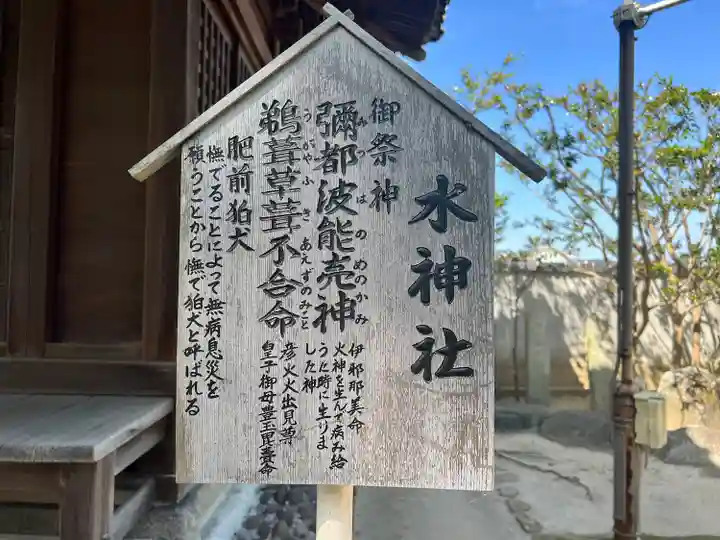 水神社
御祭神
彌都波能売神
みつはのめのかみ
伊邪那美命
火神を生んで病み給
うた時に生りま
した神
鵜葺草葺不合命
うがやふきあえずのみこと
彦火火出見尊
皇子御母豊玉毘売命
肥前狛犬
憮でることによって無病息災を
積うことから憮で狛犬と呼ばれる